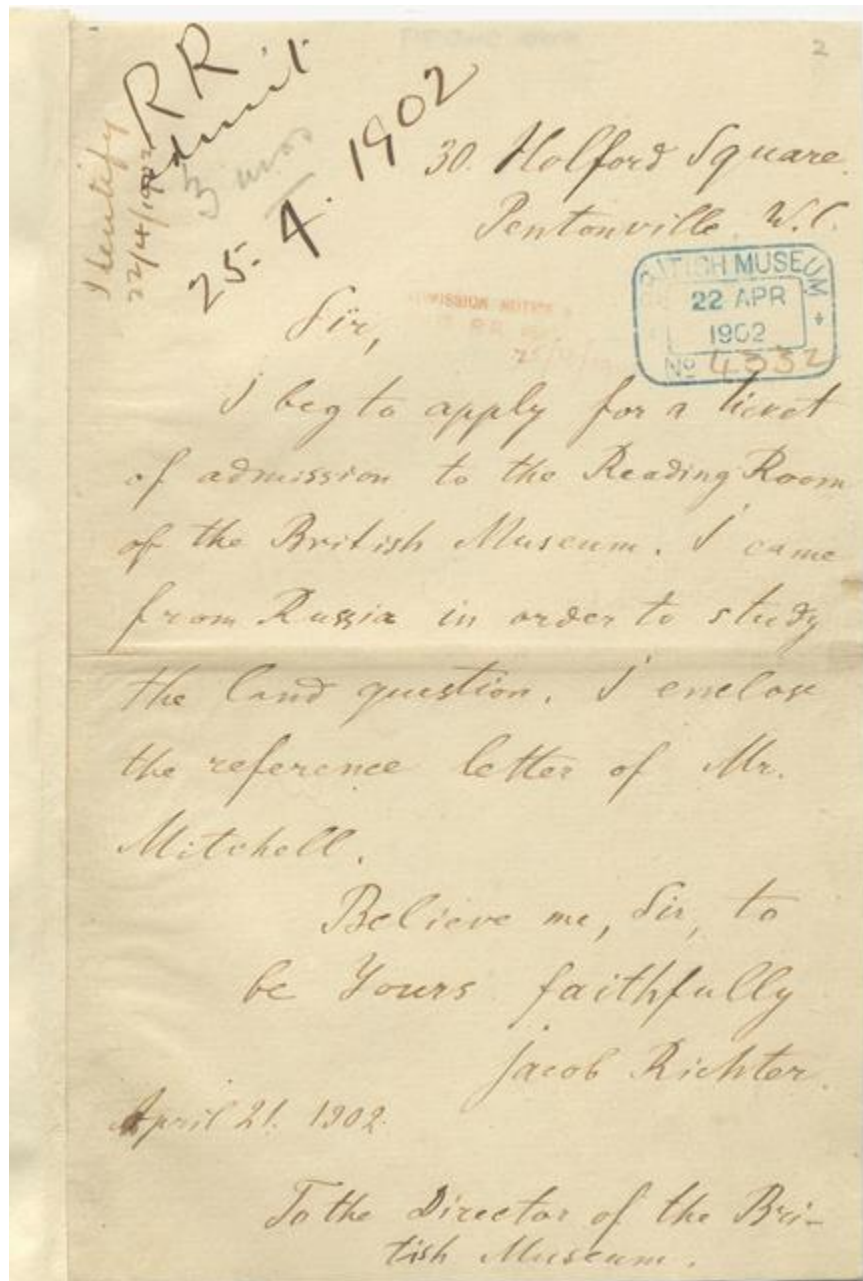 2
RR
admit
25.4.1902
Identify
22/4/1902
30. Holford Square.
Pentonville. W.C.
BRITISH MUSEUM
22 APR
1902
No 4332
Sir,
I beg to apply for a ticket
of admission to the Reading Room
of the British Museum. I came
from Russia in order to study
the land question. I enclose
the reference letter of Mr.
Mitchell.
Believe me, Sir, to
be Yours faithfully
Jacob Richter.
April 21. 1902.
To the Director of the Bri-
tish Museum.